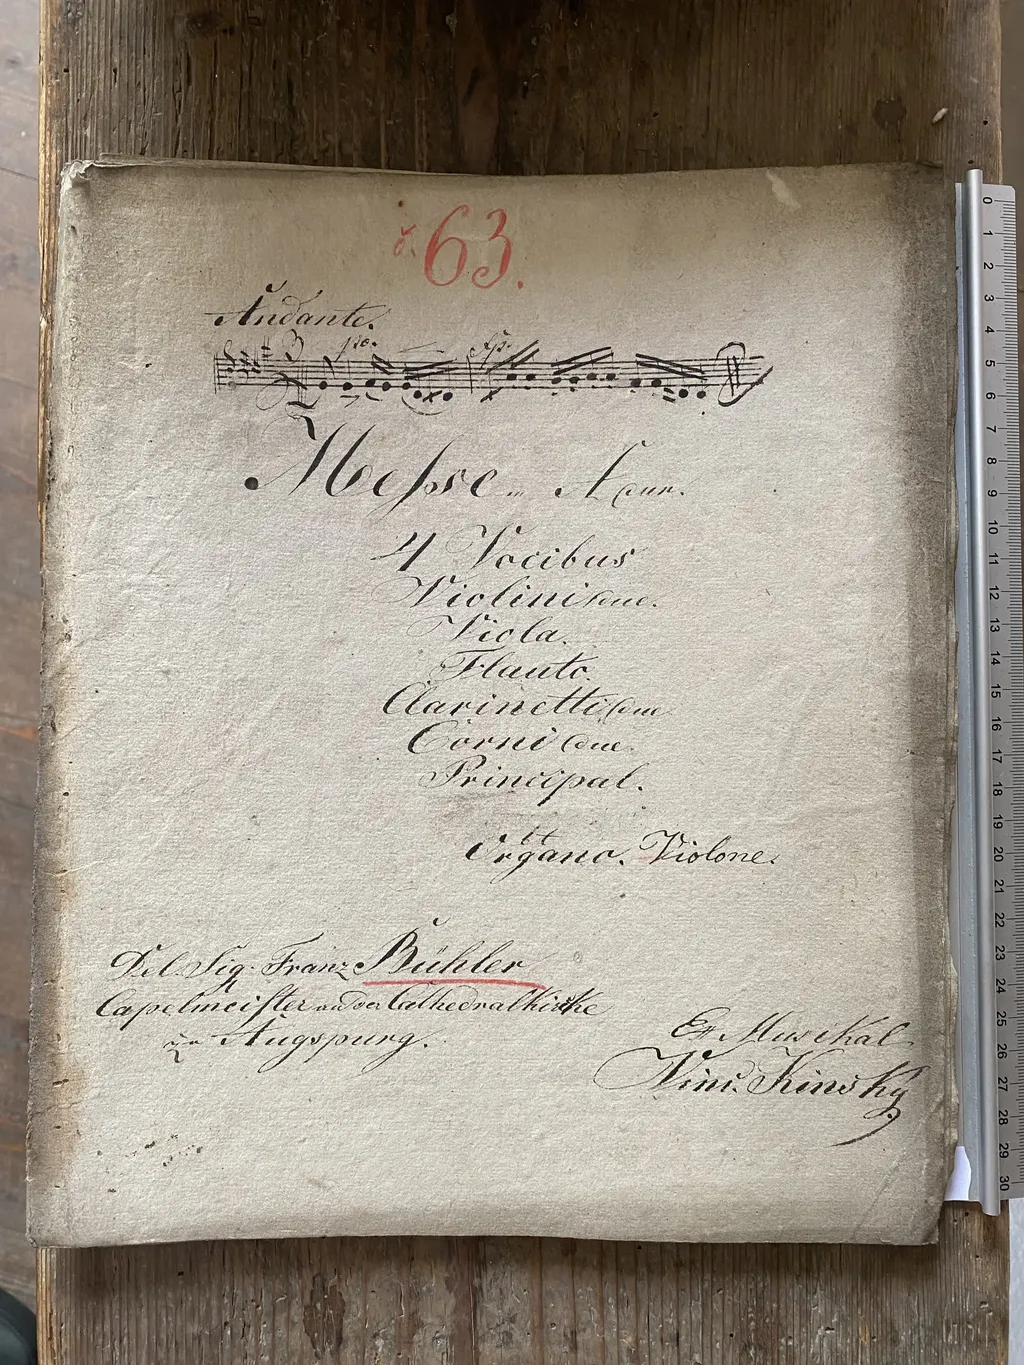 č. 63.
Andante.
pio. fp.
Messe in A dur.
4 Vocibus
Violini due.
Viola.
Flauto.
Clarinetti due
Corni due.
Principal.
et
Organo. Violone.
Del Sig. Franz Bühler
Capelmeister an der Cathedralkirke
zu Augspurg.
Ex Musikal
Vinc. Kinsky
0 1 2 3 4 5 6 7 8 9 10 11 12 13 14 15 16 17 18 19 20 21 22 23 24 25 26 27 28 29 30